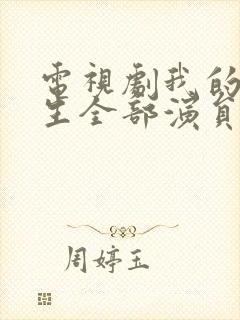 電視劇我的
生全部演員
周婷玉